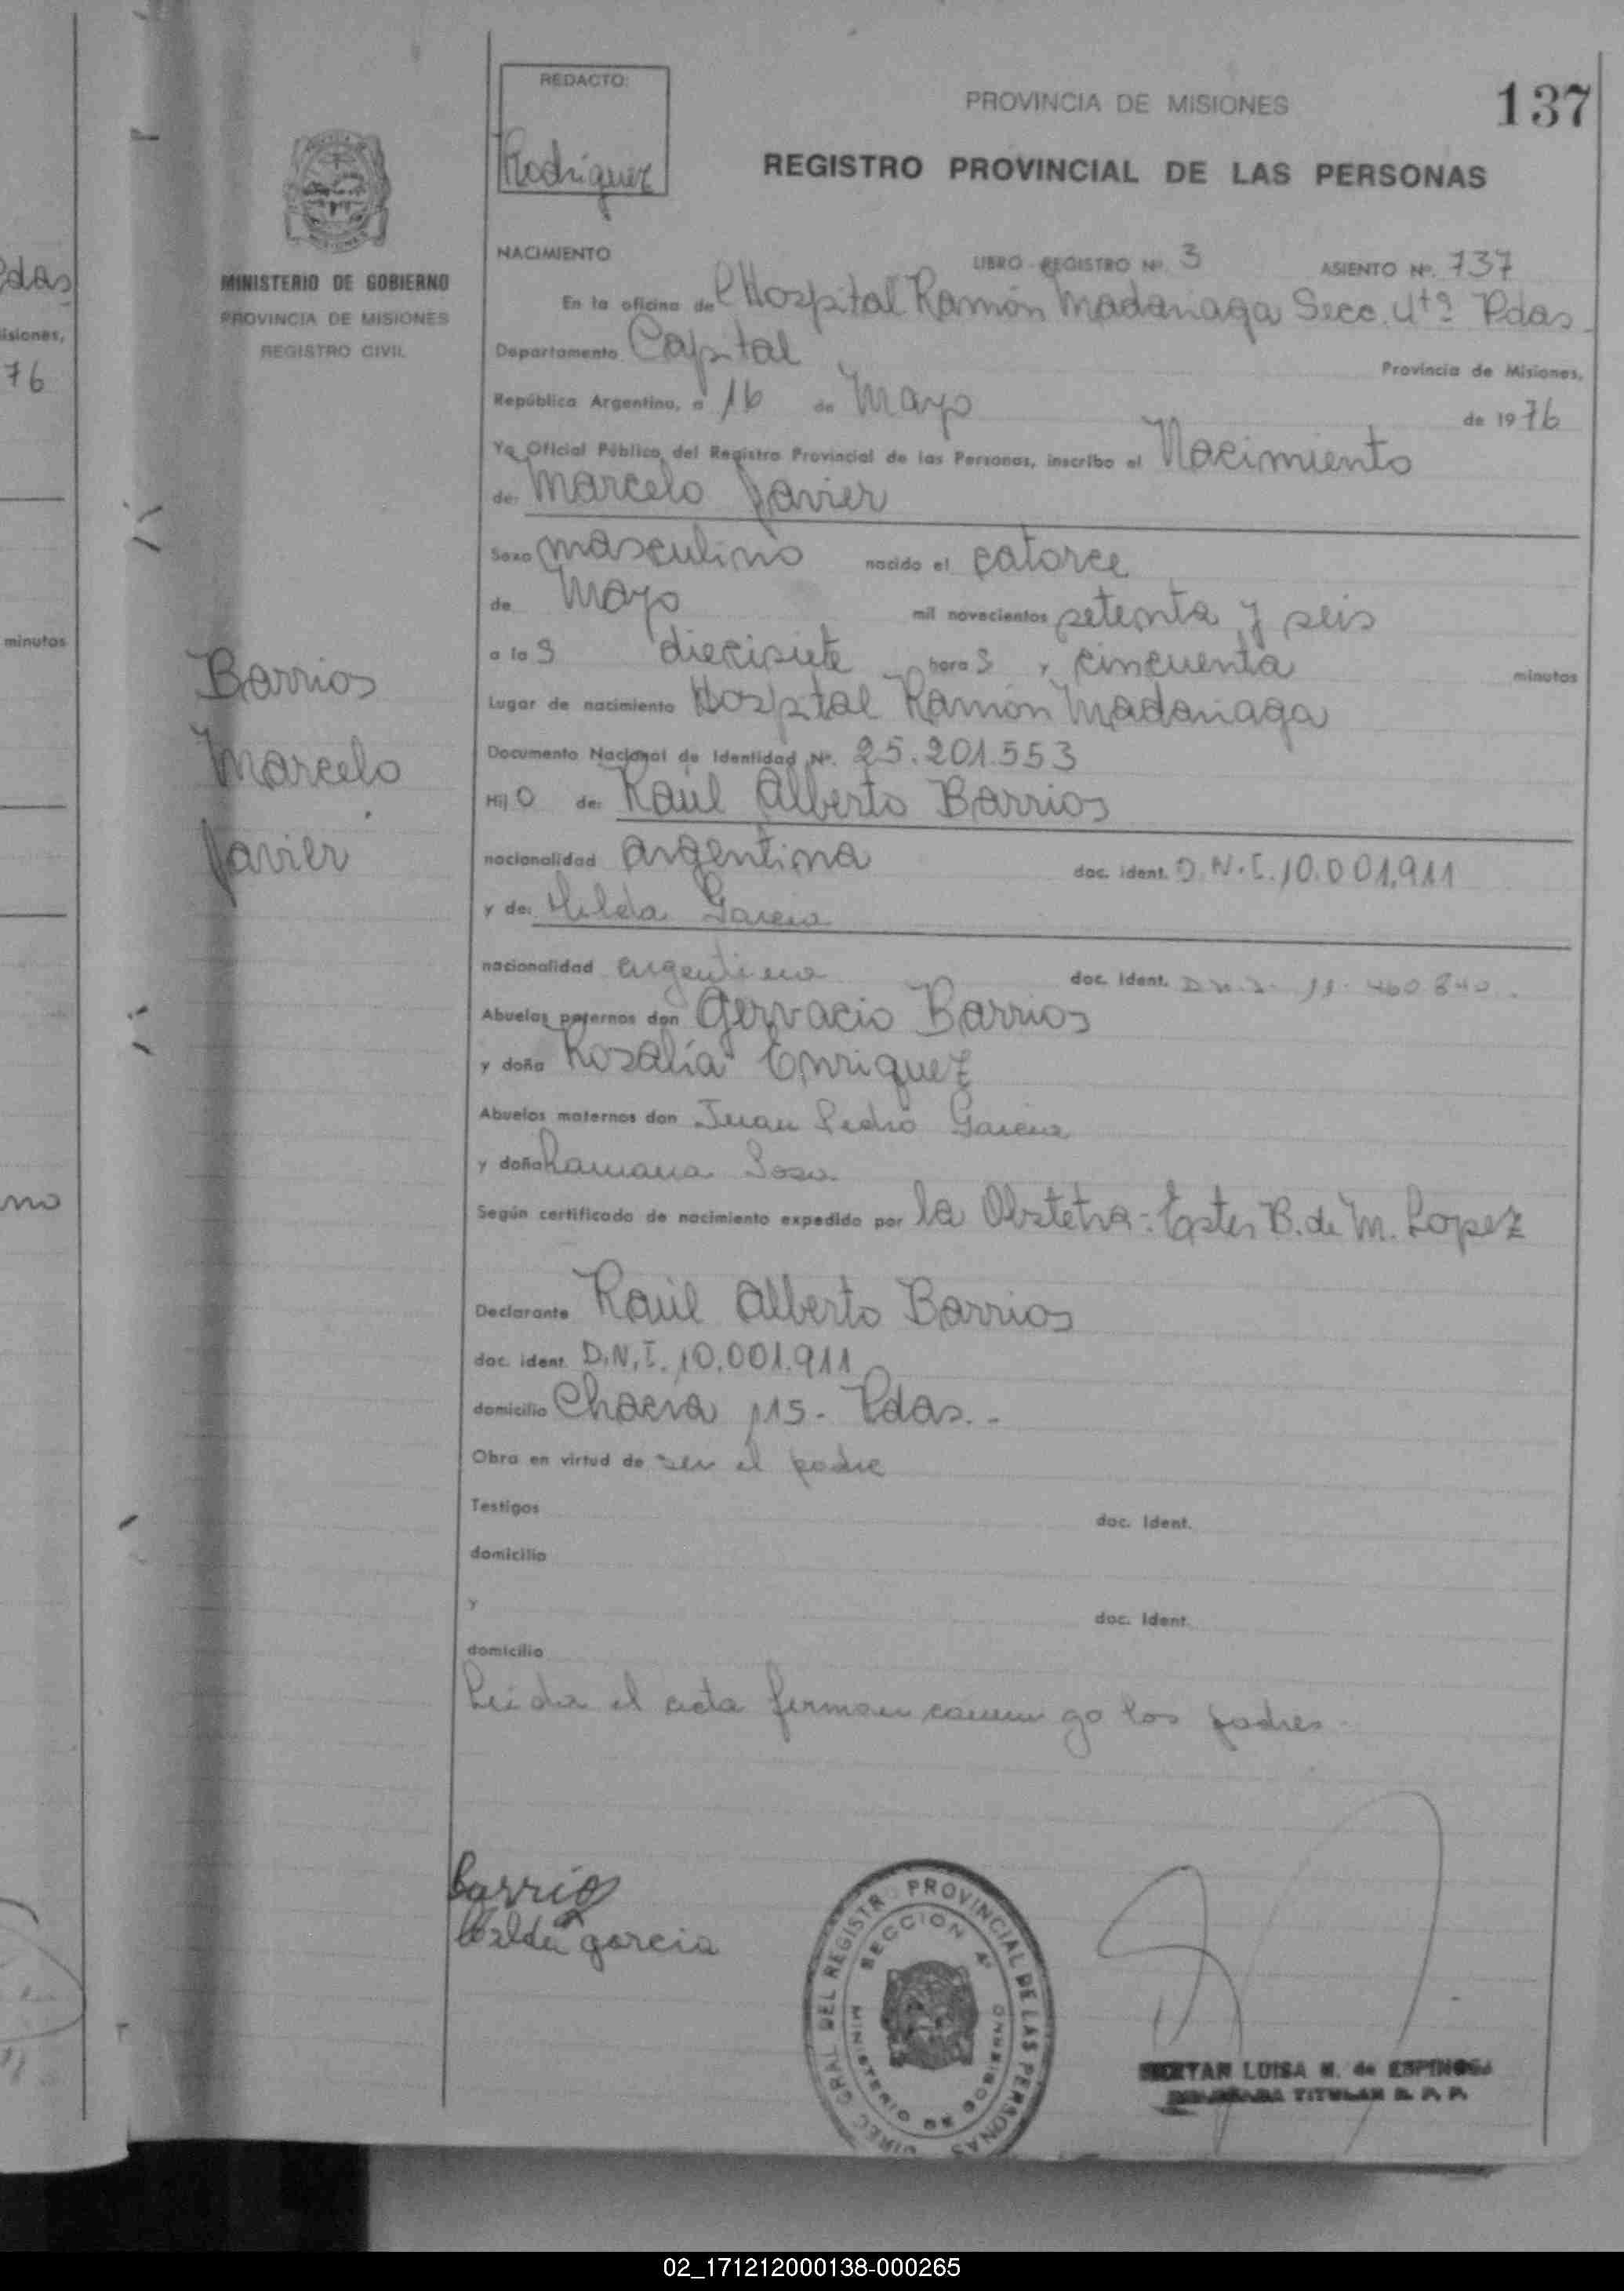 das
isiones,
76
minutos
no
REDACTO:
Rodriguez
PROVINCIA DE MISIONES
137
REGISTRO PROVINCIAL DE LAS PERSONAS
MINISTERIO DE GOBIERNO
PROVINCIA DE MISIONES
REGISTRO CIVIL
NACIMIENTO LIBRO REGISTRO Nº. 3 ASIENTO Nº. 737
En la oficina del Hospital Ramón Madariaga Secc. 4tª Pdas.
Departamento Capital Provincia de Misiones,
República Argentina, a 16 de Mayo de 1976
Yo Oficial Público del Registro Provincial de las Personas, inscribo el Nacimiento
de: Marcelo Javier
Sexo masculino nacido el catorce
de Mayo mil novecientos setenta y seis
a las diecisiete horas y cincuenta minutos
Barrios
Marcelo
Javier
Lugar de nacimiento Hospital Ramón Madariaga
Documento Nacional de Identidad Nº. 25.201.553
Hijo de: Raúl Alberto Barrios
nacionalidad argentina doc. ident. D.N.I. 10.001.911
y de: Hilda Garcia
nacionalidad argentina doc. ident. D.N.I. 11.460.840.
Abuelos paternos don Gervacio Barrios
y doña Rosalía Enriquez
Abuelos maternos don Juan Pedro Garcia
y doña Ramona Sosa
Según certificado de nacimiento expedido por la Obstetra: Ester B. de M. Lopez
Declarante Raúl Alberto Barrios
doc. ident. D.N.I. 10.001.911
domicilio Chacra 115 - Pdas. -
Obra en virtud de ser el padre
Testigos doc. ident.
domicilio
y doc. ident.
domicilio
Leida el acta firman conmigo los padres.
Barrios
Hilda garcia
DIREC GRAL DEL REGISTR PROVINCIAL DE LAS PERSONAS
SECCION 4ª
MINISTERIO DE GOBIERNO
LUISA M. de ESPINOSA
TITULAR R. P. P.
02_171212000138-000265